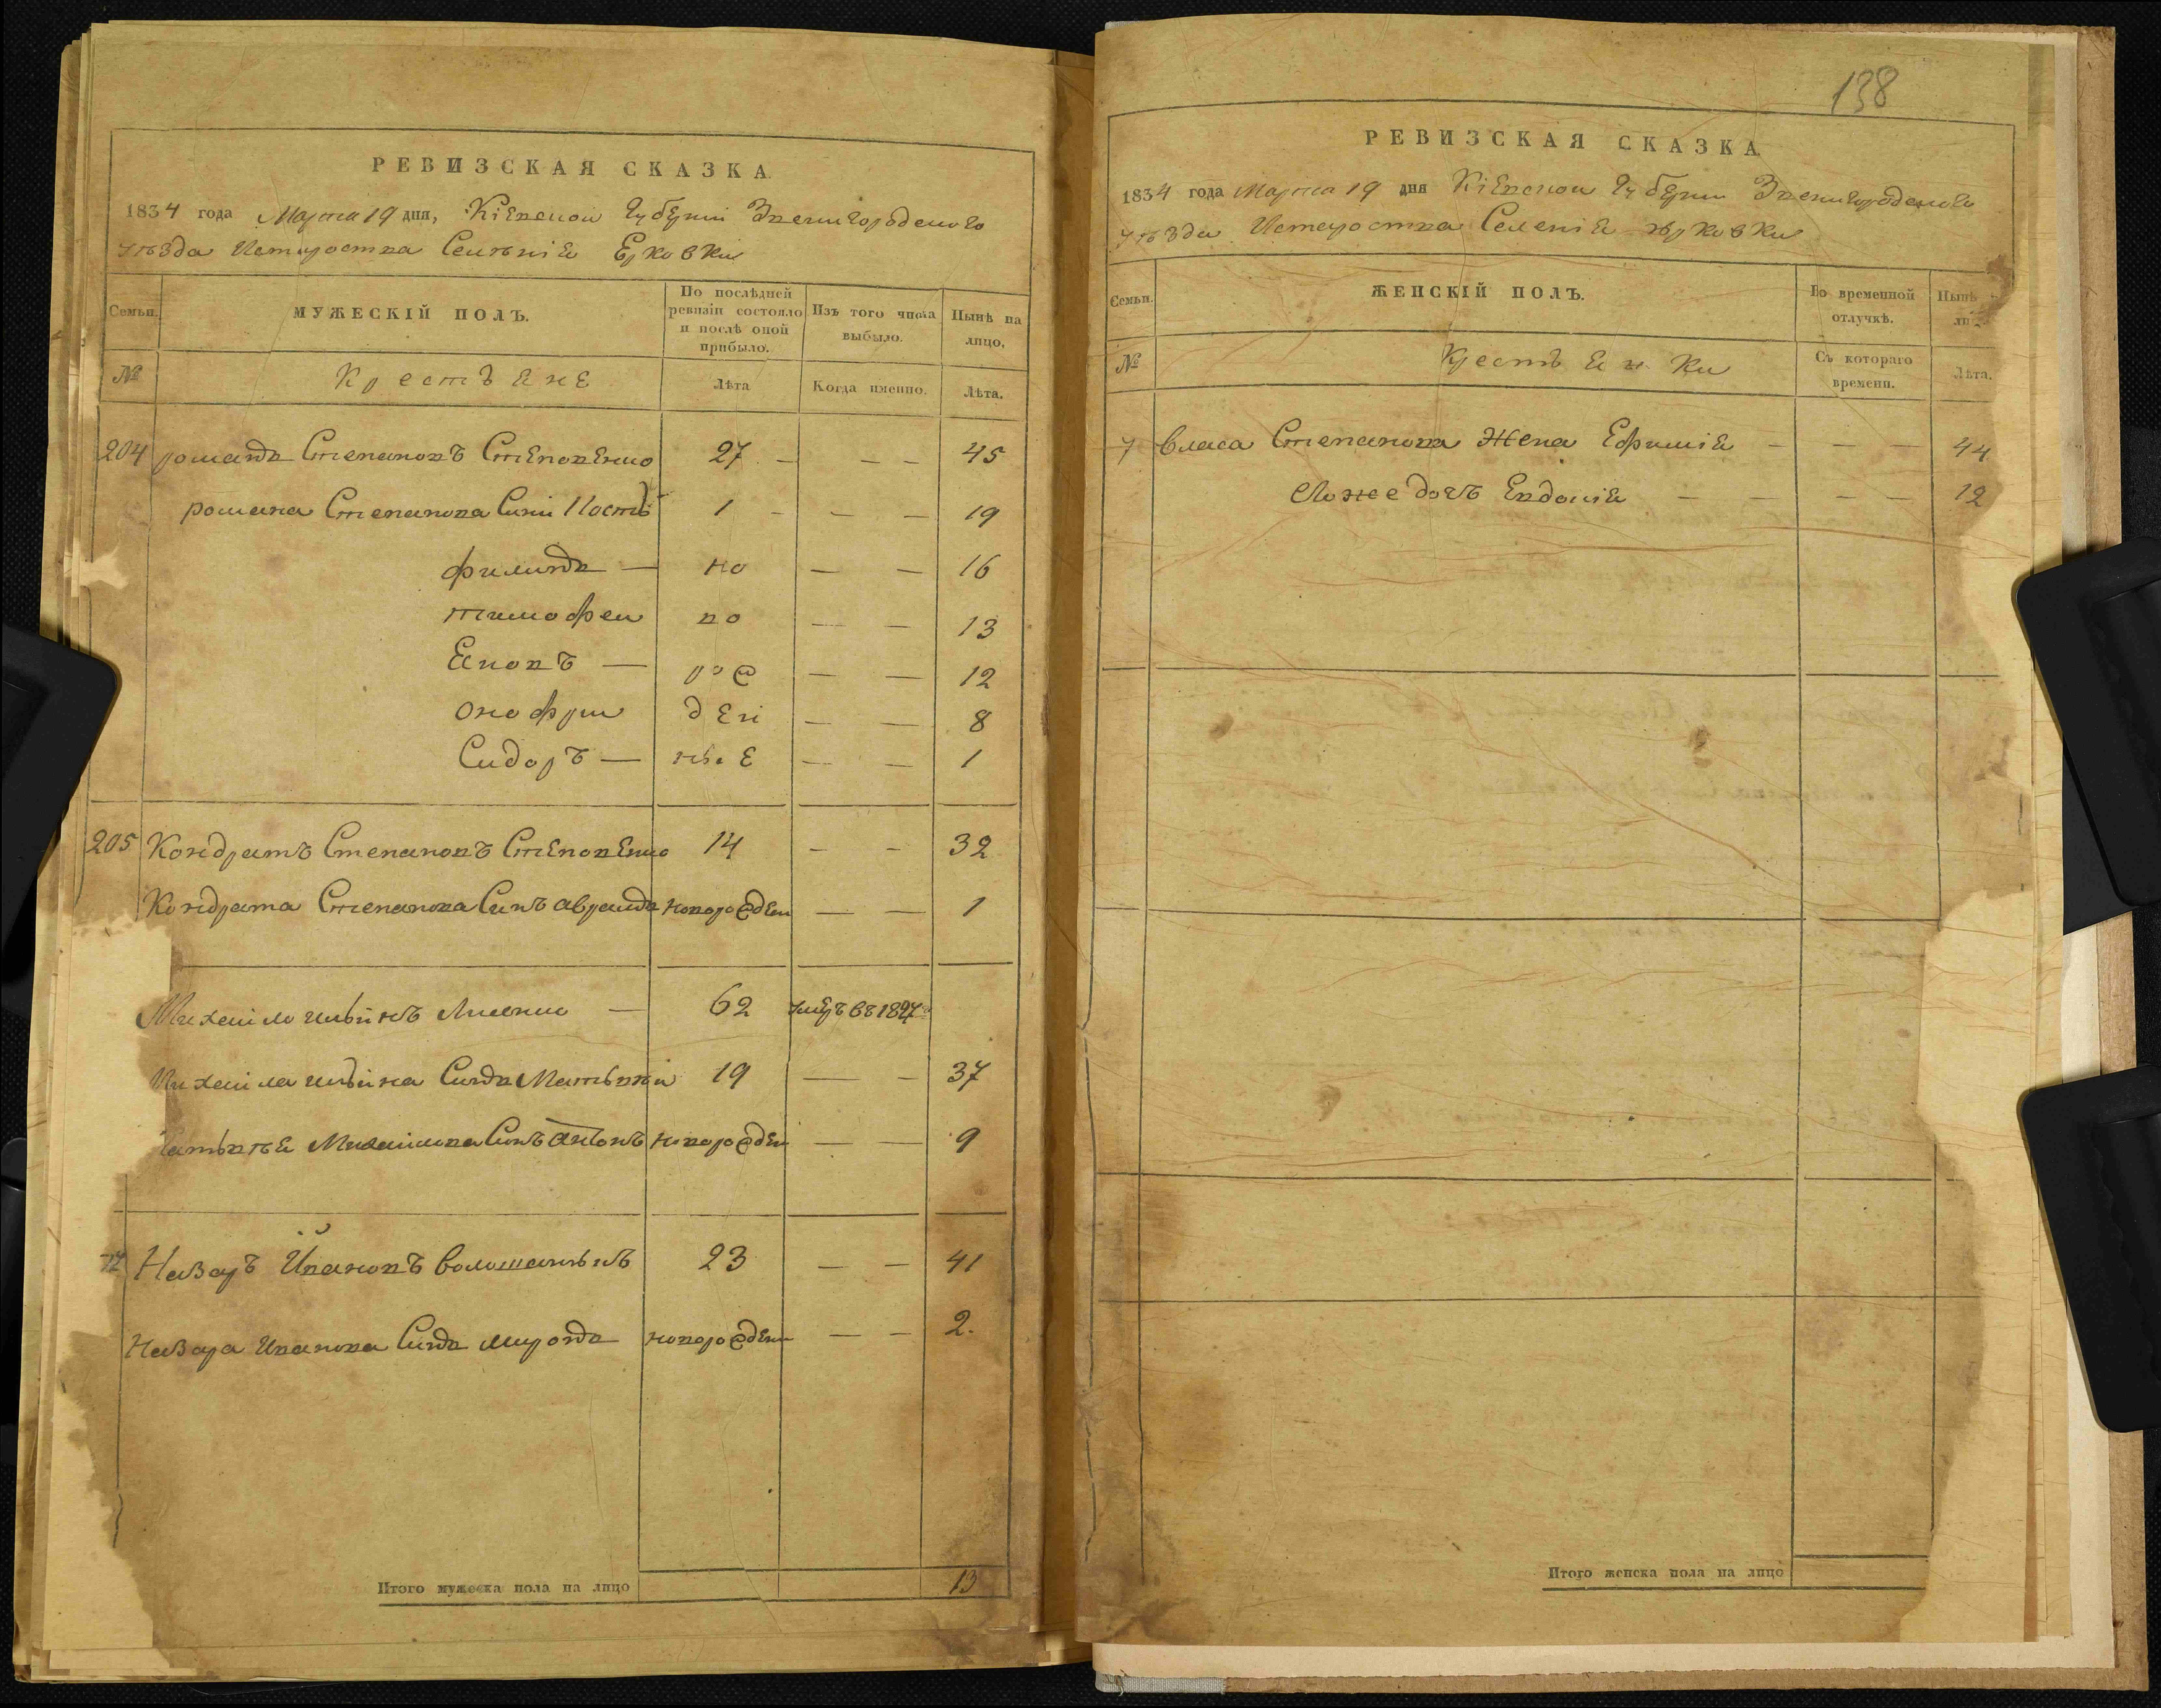 РЕВИЗСКАЯ СКАЗКА
1834 года Марта 19 дня, Кіевской Губерніи Звенигородского
уѣзда Истароства Селѣнія Ерковки
Семьи. МУЖЕСКІЙ ПОЛЪ. По послѣдней ревизіи состояло и послѣ оной прибыло. Изъ того числа выбыло. Нынѣ на лицо.
№ Крестьяне Лѣта Когда именно. Лѣта.
204 романъ Степановъ Степовенко 27 — — — 45
романа Степанова Сини 1 — — — 19
филипъ — но — — 16
тимофеи во — — 13
Яковъ — рож — — 12
Онофри дені — — 8
Сидоръ — ные — — 1
205 Кондратъ Степановъ Степовенко 14 — — 32
Кондрата Степанова Синъ аврамъ новорожден — — 1
Михаило ильйнъ Лисенко — 62 умеръ въ 1827
Михаила ильйна Синъ Матьвей 19 — — 37
Матьвѣя Михаилова Синъ антонъ новорожден — — 9
Назаръ Йвановъ волошанънъ 23 — — 41
Назара Иванова Синъ миронъ новорожден — — 2.
Итого мужеска пола на лицо 13
138
РЕВИЗСКАЯ СКАЗКА
1834 года Марта 19 дня Кіевскои Губерни Звенигородского
уѣзда Истароства Селенія Ярковки
Семьи. ЖЕНСКІЙ ПОЛЪ. Во временной отлучкѣ. Нынѣ
№ Крестьянки Съ котораго времени. Лѣта.
7 власа Степанова Жена Ефимія — — — 44
Его же дочь Евдокія — — — — 12
Итого женска пола на лицо